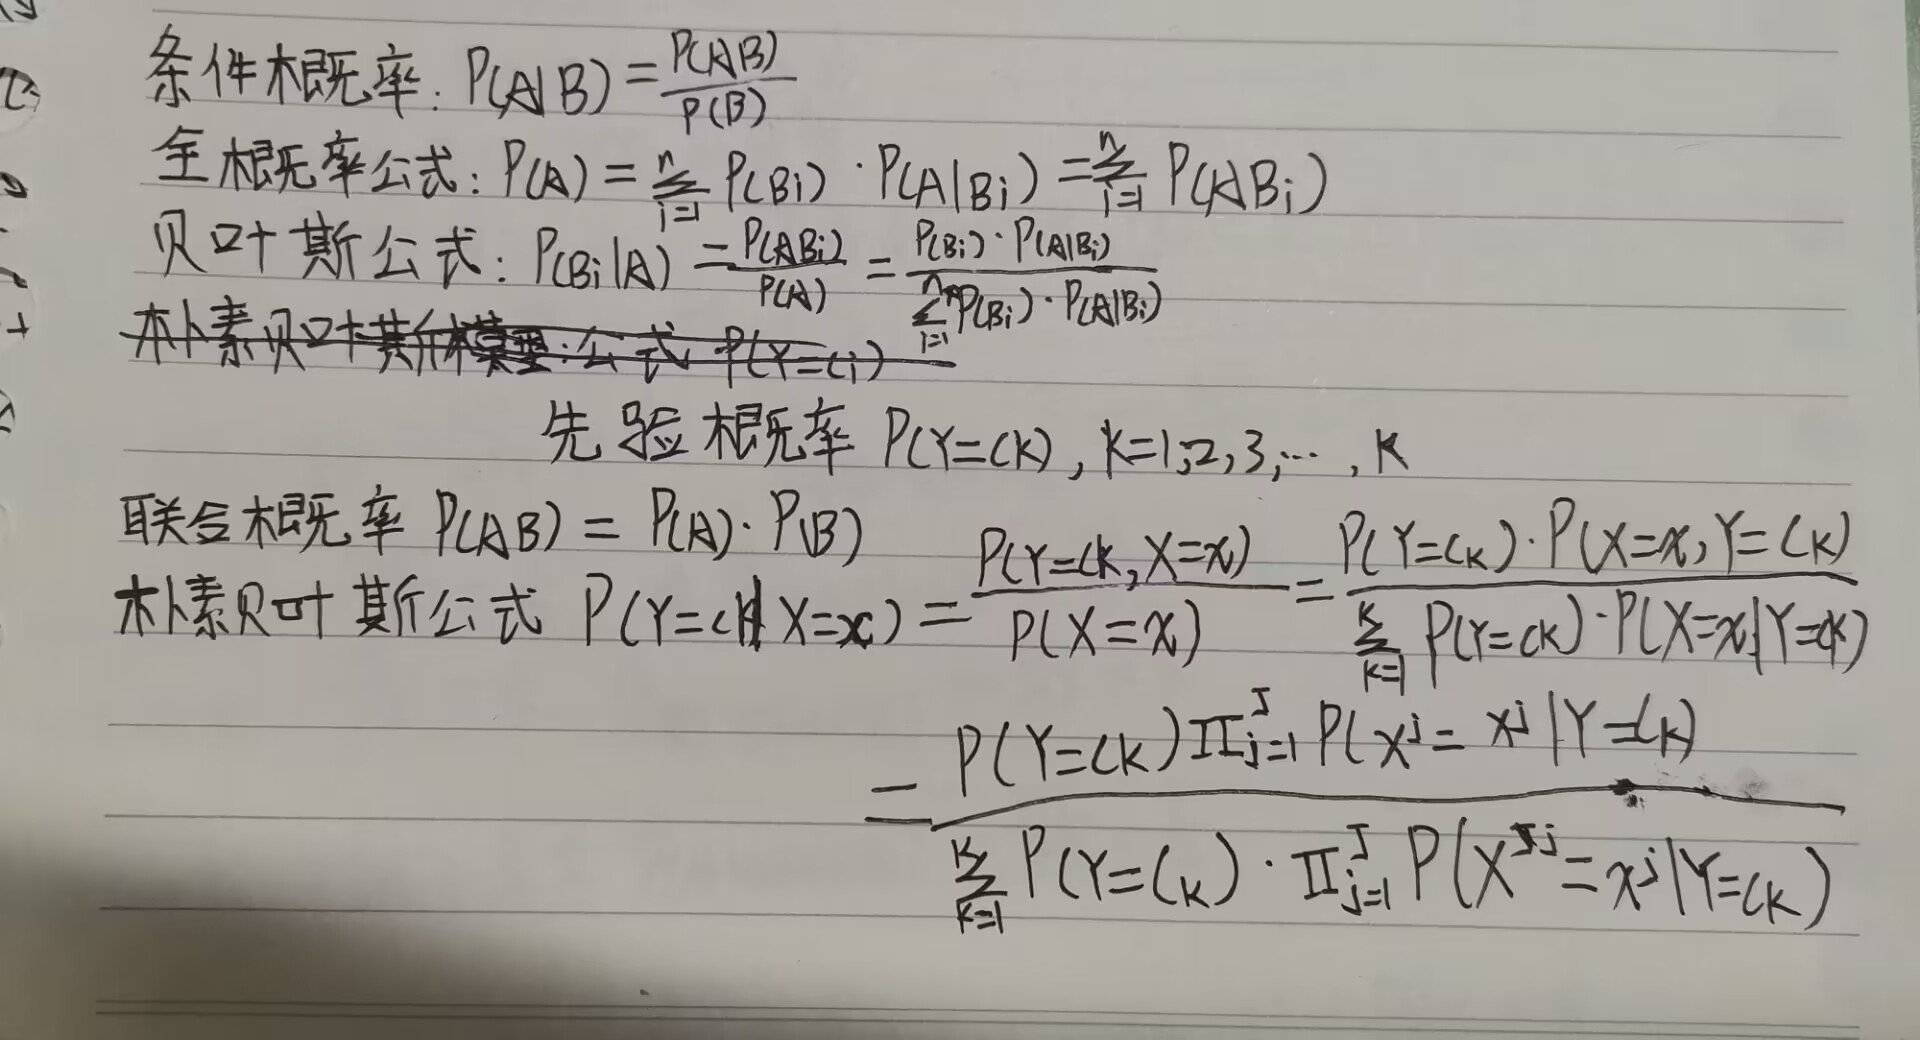 条件概率: P(A|B) = P(AB) / P(B)
全概率公式: P(A) = ∑_{i=1}^{n} P(Bi) · P(A|Bi) = ∑_{i=1}^{n} P(ABi)
贝叶斯公式: P(Bi|A) = P(ABi) / P(A) = P(Bi) · P(A|Bi) / ∑_{i=1}^{n} P(Bi) · P(A|Bi)
朴素贝叶斯模型: 公式 P(Y=Ci)
先验概率 P(Y=CK), K=1,2,3,…, K
联合概率 P(AB) = P(A) · P(B)
朴素贝叶斯公式 P(Y=CK|X=x) = P(Y=CK, X=x) / P(X=x) = P(Y=CK) · P(X=x, Y=CK) / ∑_{K=1}^{K} P(Y=CK) · P(X=x|Y=CK)
= P(Y=CK) ∏_{j=1}^{J} P(X^j = x^j | Y=CK) / ∑_{K=1}^{K} P(Y=CK) · ∏_{j=1}^{J} P(X^j = x^j | Y=CK)